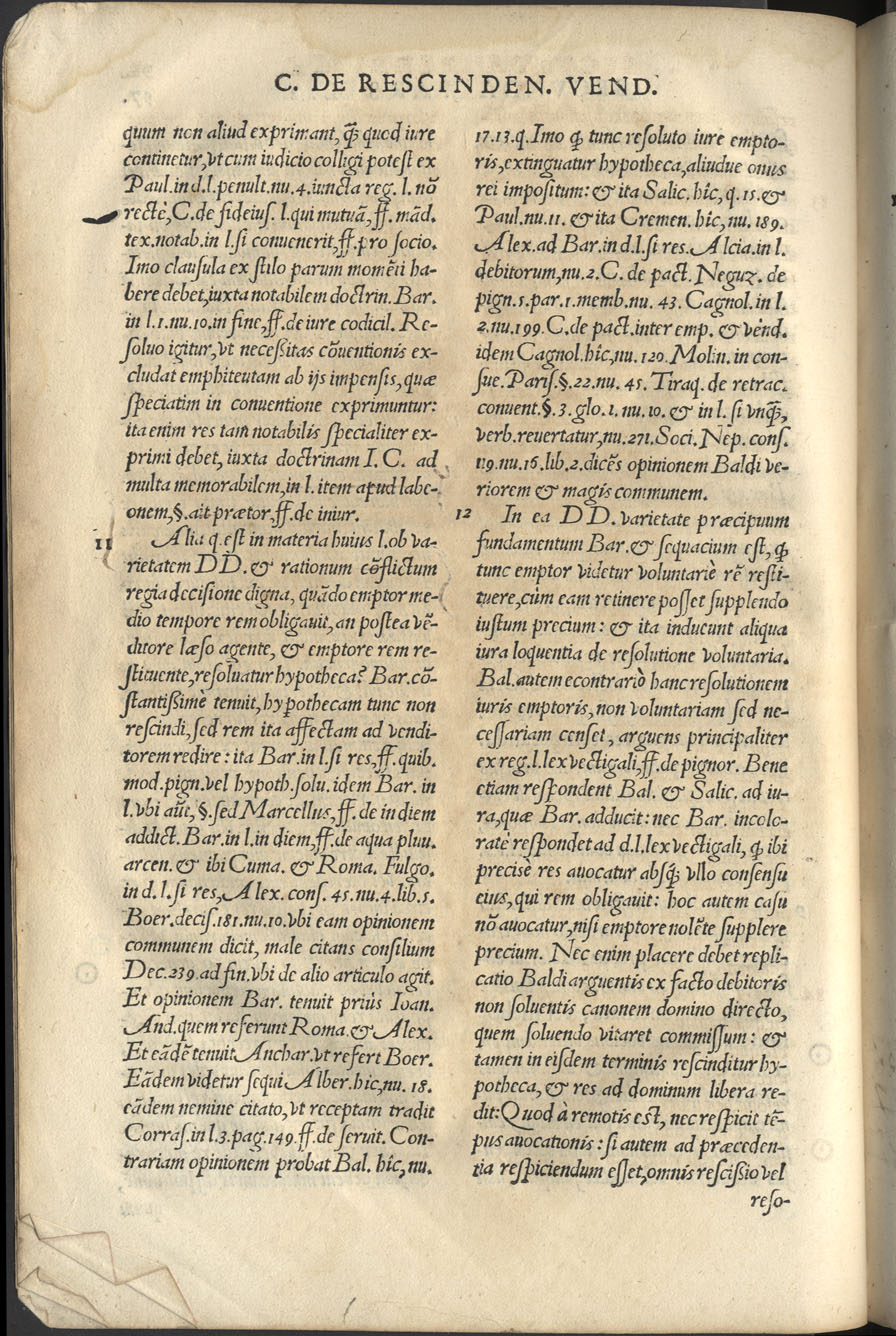 C. DE RESCINDEN. VEND.
quum non aliud exprimant, q̃ꝫ quod iure
continetur, vt cum iudicio colligi potest ex
Paul. in d.l. penult. nu. 4. iuncta reg. l. nõ
rectè, C. de fideius. l. qui mutuã, ff. mãd.
tex. notab. in l. si conuenerit, ff. pro socio.
Imo clausula ex stilo parum momẽti ha-
bere debet, iuxta notabilem doctrin. Bar.
in l. 1. nu. 10. in fine, ff. de iure codicil. Re-
soluo igitur, vt necessitas cõuentionis ex-
cludat emphiteutam ab ijs impensis, quæ
speciatim in conuentione exprimuntur:
ita enim res tam notabilis specialiter ex-
primi debet, iuxta doctrinam I. C. ad
multa memorabilem, in l. item apud labe-
onem, §. ait prætor, ff. de iniur.
11 Alia q. est in materia huius l. ob va-
rietatem DD. & rationum cõflictum
regia decisione digna, quãdo emptor me-
dio tempore rem obligauit, an postea vẽ-
ditore læso agente, & emptore rem re-
stituente, resoluatur hypotheca? Bar. cõ-
stantissimè tenuit, hypothecam tunc non
rescindi, sed rem ita affectam ad vendi-
torem redire: ita Bar. in l. si res, ff. quib.
mod. pign. vel hypoth. solu. idem Bar. in
l. vbi aut̃, §. sed Marcellus, ff. de in diem
addict. Bar. in l. in diem, ff. de aqua pluu.
arcen. & ibi Cuma. & Roma. Fulgo.
in d. l. si res, Alex. cons. 45. nu. 4. lib. 5.
Boer. decis. 181. nu. 10. vbi eam opinionem
communem dicit, male citans consilium
Dec. 239. ad fin. vbi de alio articulo agit.
Et opinionem Bar. tenuit priùs Ioan.
And. quem referunt Roma. & Alex.
Et eãdẽ tenuit Anchar. vt refert Boer.
Eãdem videtur sequi Alber. hic, nu. 18.
eãdem nemine citato, vt receptam tradit
Corras. in l. 3. pag. 149. ff. de seruit. Con-
trariam opinionem probat Bal. hîc, nu.
17. 13. q. Imo ꝙ tunc resoluto iure empto-
ris, extinguatur hypotheca, aliudue onus
rei impositum: & ita Salic. hîc, q. 15. &
Paul. nu. 11. & ita Cremen. hic, nu. 189.
Alex. ad Bar. in d. l. si res. Alcia. in l.
debitorum, nu. 2. C. de pact. Neguz. de
pign. 5. par. 1. memb. nu. 43. Cagnol. in l.
2. nu. 199. C. de pact. inter emp. & vend.
idem Cagnol. hîc, nu. 120. Molin. in con-
sue. Paris. §. 22. nu. 45. Tiraq. de retrac.
conuent. §. 3. glo. 1. nu. 10. & in l. si vnq̃ꝫ,
verb. reuertatur, nu. 271. Soci. Nep. cons.
119. nu. 16. lib. 2. dicẽs opinionem Baldi ve-
riorem & magis communem.
12 In ea DD. varietate præcipuum
fundamentum Bar. & sequacium est, ꝙ
tunc emptor videtur voluntariè rẽ resti-
tuere, cùm eam retinere posset supplendo
iustum precium: & ita inducunt aliqua
iura loquentia de resolutione voluntaria.
Bal. autem econtrariò hanc resolutionem
iuris emptoris, non voluntariam sed ne-
cessariam censet, arguens principaliter
ex reg. l. lex vectigali, ff. de pignor. Bene
etiam respondent Bal. & Salic. ad iu-
ra, quæ Bar. adducit: nec Bar. incolo-
ratè respondet ad d. l. lex vectigali, ꝙ ibi
precisè res auocatur absq̃ꝫ vllo consensu
eius, qui rem obligauit: hoc autem casu
nõ auocatur, nisi emptore nolẽte supplere
precium. Nec enim placere debet repli-
catio Baldi arguentis ex facto debitoris
non soluentis canonem domino directo,
quem soluendo vitaret commissum: &
tamen in eisdem terminis rescinditur hy-
potheca, & res ad dominum libera re-
dit: Quod à remotis est, nec respicit tẽ-
pus auocationis: si autem ad præceden-
tia respiciendum esset, omnis rescissio vel
reso-